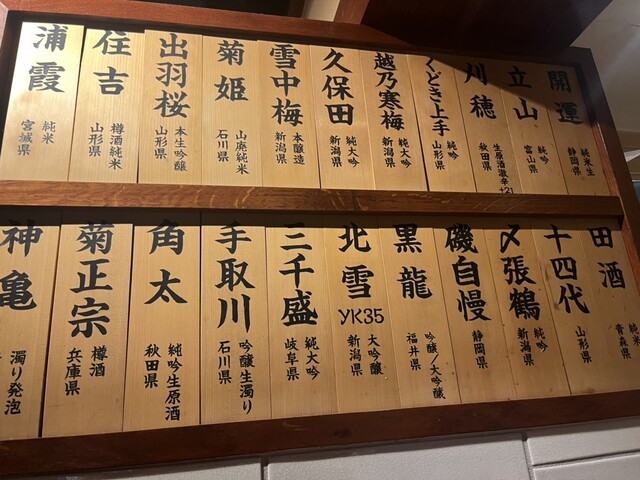 開運
純米生
静岡県
立山
純吟
富山県
刈穂
生原酒激辛+21
秋田県
くどき上手
純吟
山形県
越乃寒梅
純大吟
新潟県
久保田
純大吟
新潟県
雪中梅
本醸造
新潟県
菊姫
山廃純米
石川県
出羽桜
本生吟醸
山形県
住吉
樽酒純米
山形県
浦霞
純米
宮城県
田酒
純米
青森県
十四代
山形県
〆張鶴
純吟
新潟県
磯自慢
静岡県
黒龍
吟醸/大吟醸
福井県
北雪
YK35
大吟醸
新潟県
三千盛
純大吟
岐阜県
手取川
吟醸生濁り
石川県
角太
純吟生原酒
秋田県
菊正宗
樽酒
兵庫県
神亀
濁り発泡